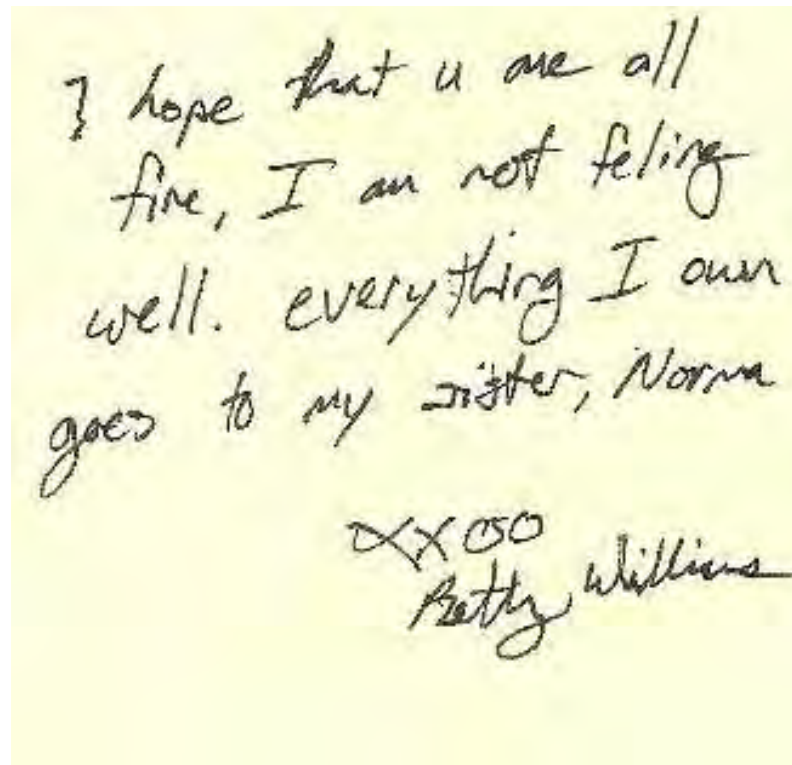 I hope that u are all
fine, I am not feling
well. everything I own
goes to my sister, Norma
xxoo
Betty Williams